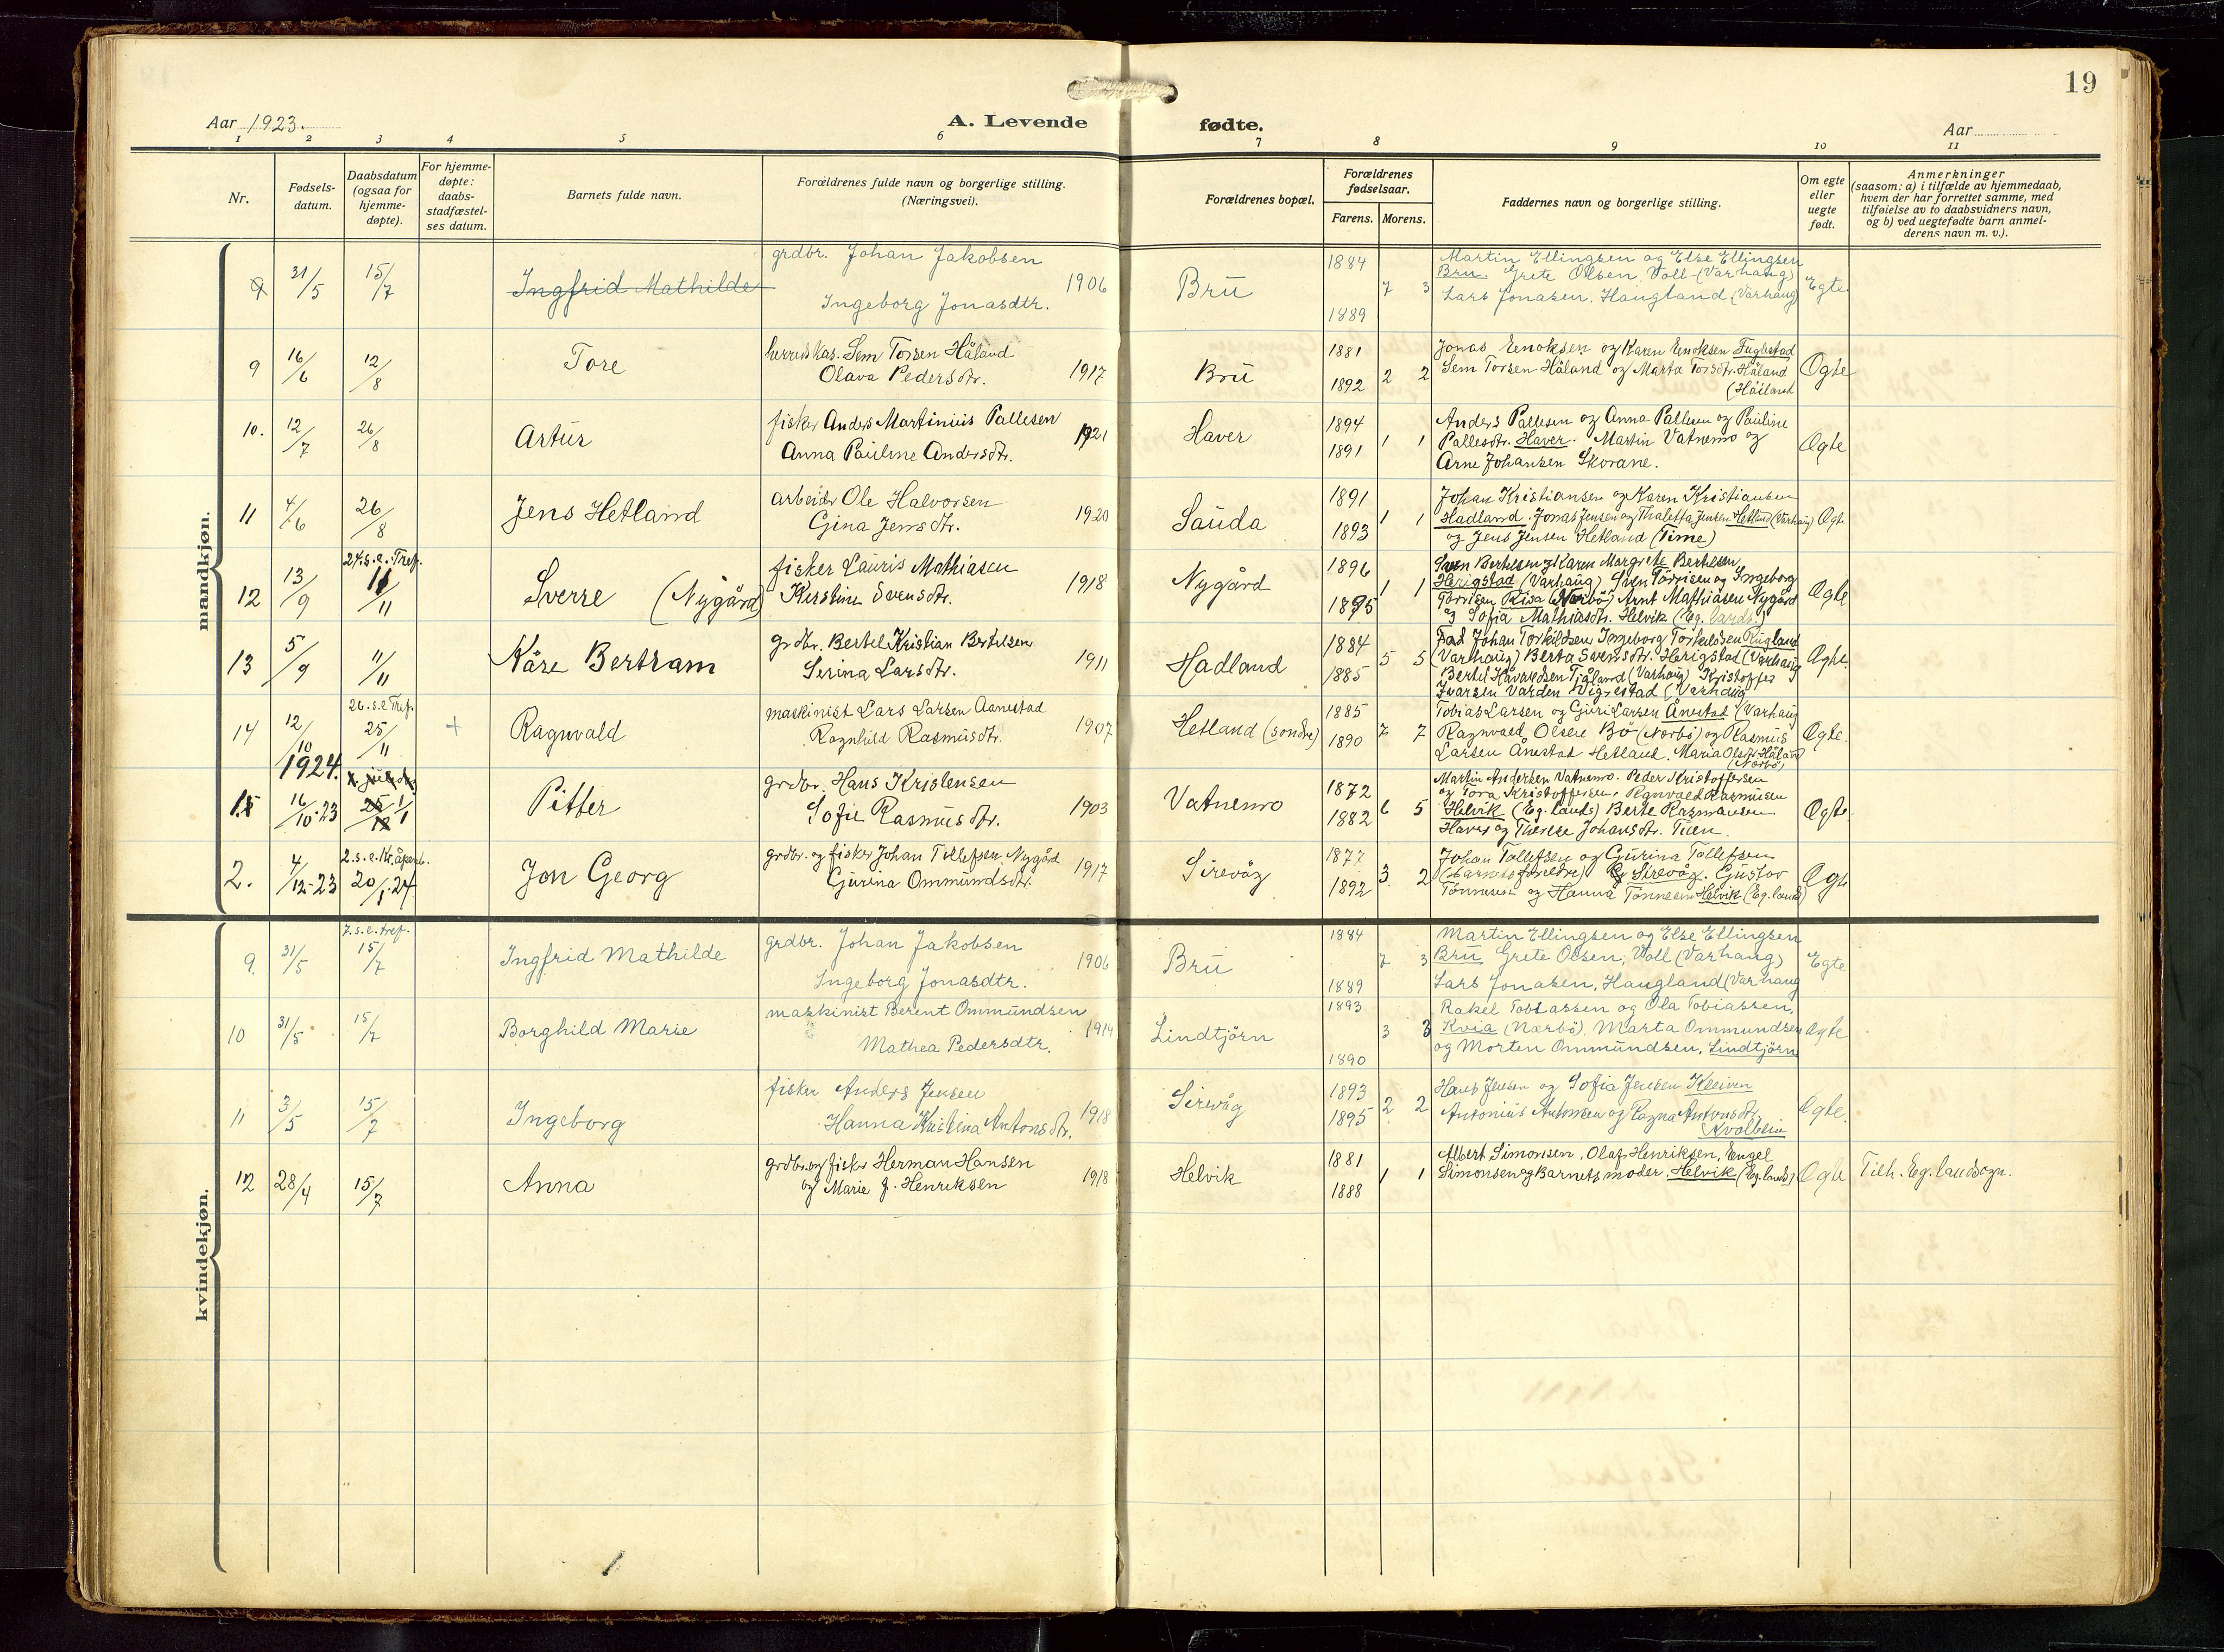 19
Aar 1923.
A. Levende fødte.
Aar
1 2 3 4 5 6 7 8 9 10 11
Nr.
Fødsels-
datum.
Daabsdatum
(ogsaa for
hjemme-
døpte).
For hjemme-
døpte:
daabs-
stadfæstel-
ses datum.
Barnets fulde navn.
Forældrenes fulde navn og borgerlige stilling.
(Næringsvei).
Forældrenes bopæl.
Forældrenes
fødselsaar.
Farens. Morens.
Faddernes navn og borgerlige stilling.
Om egte
eller
uegte
født.
Anmerkninger
(saasom: a) i tilfælde av hjemmedaab,
hvem der har forrettet samme, med
tilføielse av to daabsvidners navn,
og b) ved uegtefødte barn anmel-
derens navn m. v.).
mandkjøn.
9 31/5 15/7 Ingfrid Mathilde
grdbr. Johan Jakobsen
Ingeborg Jonasdtr. 1906
Brü 1884 1889 7 3
Martin Ellingsen og Else Ellingsen
Bru Grete Olsen, Voll (Varhaug)
Lars Jonasen, Haugland (Varhaug)
Egte
9 16/6 12/8 Tore
herredskas. Sem Torsen Håland
Olava Pedersdtr. 1917
Brü 1881 1892 2 2
Jonas Enoksen og Karen Enoksen Fuglestad
Sem Torsen Håland og Marta Torsdtr. Håland
Ægte
10. 12/7 26/8 Artür
fisker Anders Martinius Pallesen
Anna Pauline Andersdtr. 1921
Haver 1894 1891 1 1
Anders Pallesen og Anna Pallesen og Pauline
Pallesdtr. Haver. Martin Vatnemo og
Arne Johansen Skorane.
Ægte
11 4/6 26/8 Jens Hetland
arbeider Ole Halvorsen
Gina Jensdtr. 1920
Sauda 1891 1893 1 1
Johan Kristiansen og Karen Kristiansen
Hadland. Jonas Jensen og Thaletta Jensen Hetland (Varhaug)
og Jens Jensen Hetland (Time)
Ægte
12 13/9 24.s.e.Tref. 11/11 Sverre (Nygård)
fisker Lauris Mathiasen
Kirstine Svensdtr. 1918
Nygård 1896 1895 1 1
Sven Bertelsen og Karen Margrete Bertelsen
Herigstad (Varhaug) Sven Torrisen og Ingeborg
Torrisen (Nærbö) Arnt Mathiasen Nygård
og Sofia Mathiasdtr. Helvik (Eg. lands.)
Ægte
13 5/9 11/11 Kåre Bertram
grdbr. Bertel Kristian Bertelsen
Serina Larsdtr. 1911
Hadland 1884 1885 5 5
Johan Torkildsen Ingeborg Torkildsen
(Varhaug) Berta Svensdtr. Herigstad (Varhaug)
Bertel Håvaldsen Tjåland (Varhaug) Kristoffer
Ivarsen Varden Vigrestad (Varhaug)
Ægte.
14 12/10 26.s.e.Tref. 25/11 + Ragnvald
maskinist Lars Larsen Aanestad
Ragnhild Rasmüsdtr. 1907
Hetland (sondre) 1885 1890 7 7
Tobias Larsen og Guri Larsen Ånestad (Varhaug)
Ragnvald Olsen Bö (Nærbö) og Rasmus
Larsen Ånestad Hetland. Maria Håland
(Nærbö)
Ægte.
1924.
1. 16/10-23 1/1 Pitter
grdbr. Hans Kristensen
Sofie Rasmüsdtr. 1903
Vatnemo 1872 1882 6 5
Martin Andersen Vatnemo. Peder Kristoffersen
og Tora Kristoffersen, Ragnvald Rasmusen
Helvik (Eg. lands) Berte Rasmussen
Haver og Therese Johansdtr. Tuen.
Ægte
2. 4/12-23 2.s.e.Kr.åpenb. 20/1.24. Jon Georg
grdbr. og fisker Johan Tollefsen Nygård
Gürina Ommündsdtr. 1917
Sirevåg 1877 1892 3 2
Johan Tollefsen og Gürina Tollefsen
(Barnets foreldre) Sirevåg. Gustov
Tönnesen og Hanna Tönnesen Helvik (Eg. lands)
Ægte
kvindekjøn.
9. 31/5 7.s.e.tref. 15/7 Ingfrid Mathilde
grdbr. Johan Jakobsen
Ingeborg Jonasdtr. 1906
Brü 1884 1889 7 3
Martin Ellingsen og Else Ellingsen
Brü Grete Olsen, Voll (Varhaug)
Lars Jonasen, Haugland (Varhaug
Egte
10 31/5 15/7 Borghild Marie
maskinist Berent Ommündsen
Mathea Pedersdtr. 1914
Lindtjörn 1893 1890 3 3
Rakel Tobiassen og Ola Tobiassen,
Kvia (Nærbö), Marta Ommundsen
og Morten Ommündsen, Lindtjörn
Ægte
11 3/5 15/7 Ingeborg
fisker Anders Jensen
Hanna Kristina Antonsdtr. 1918
Sirevåg 1893 1895 2 2
Hans Jensen og Sofia Jensen Kleiven
Antonius Antonsen og Ragna Antonsdtr.
Kvalbein
Ægte.
12 28/4 15/7 Anna
grdbr. og fisker Herman Hansen
og Marie J. Henriksen 1918
Helvik 1881 1888 1 1
Albert Simonsen, Olaf Henriksen, Engel
Simonsen og Barnets moder, Helvik (Eg. lands)
Ægte
Tilh. Eg. landsogn.